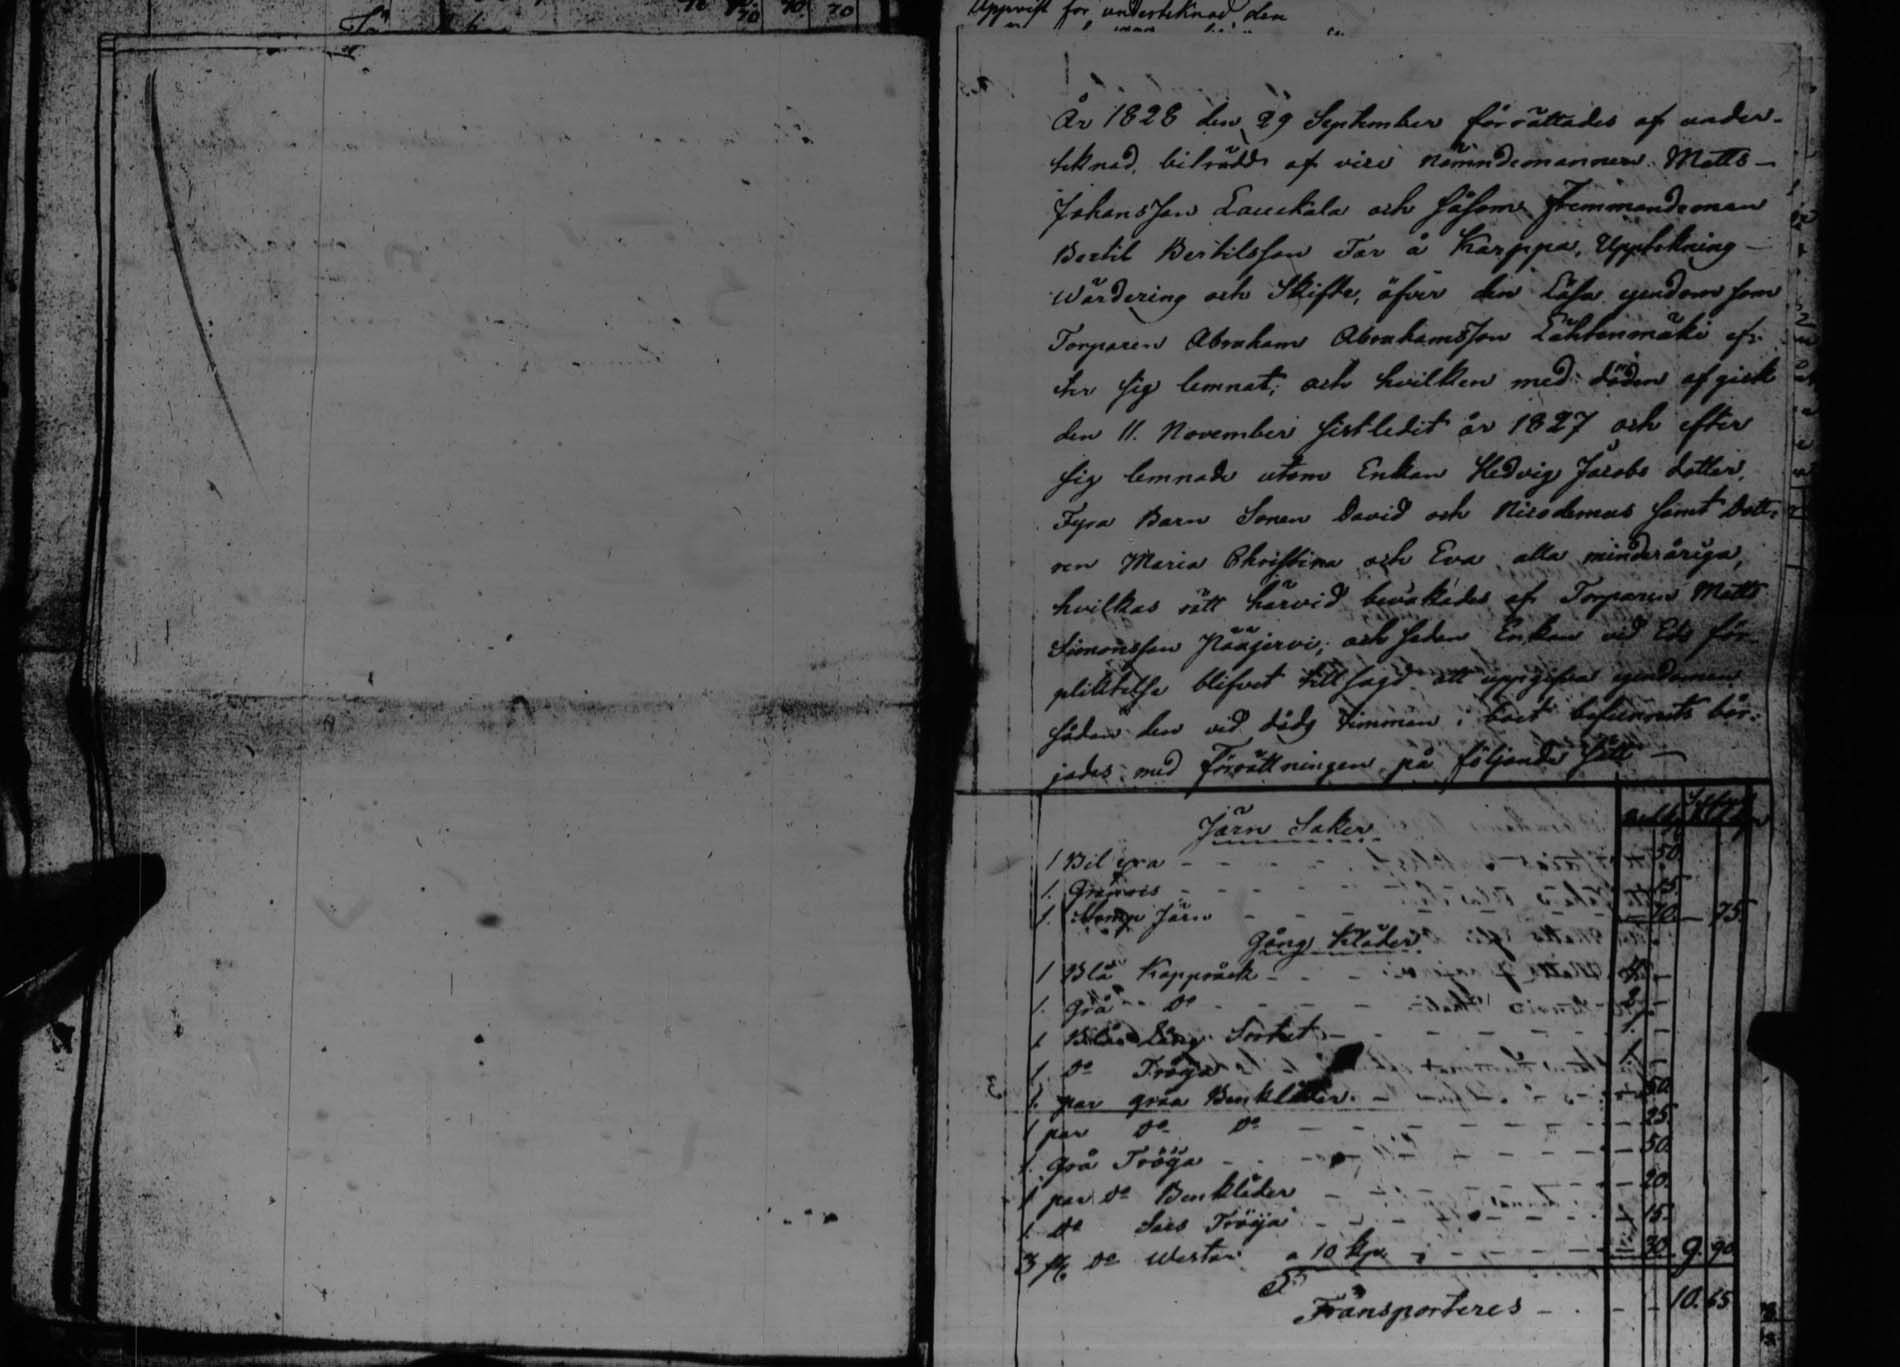 Uppvist för underteknad den
År 1828 den 29 September förrättades af under-
teknad, biträdd af vice nämndemannen Matts
Johansson Lauckala och såsom Fremmandeman
Bertil Bertilsson Tor å Karppa, Uppteknings
Wärdering och Skifte, öfver den Lösa egendom som
Torparen Abraham Abrahamsson Lähtenmäki ef-
ter sig lemnat; och hvilken med döden afgick
den 11. November sistledit år 1827 och efter
sig lemnade utom Enkan Hedvig Jacobs dotter,
Fyra Barn Sonen David och Nicodemus samt dott-
ren Maria Christina och Eva alla minderåriga,
hvilkas rätt härvid bevakades af Torparen Matts
Simonsson Nääjervi; och sedan Enkan vid Eds för-
pliktelse blifvet tillsagd att uppgifva egendomen
sådan den vid döds timman i boet befunnits bör-
jades med Förrättningen på följande sätt
Järn Saker
1 Bil yxa 50.
1. 15.
1. Järn 10. 75.
Gång Kläder
1 Blå Kappråck 4 –
1. grå do 2 –
1 Blå Lång Trötet 1. –
1 do Tröya 1. –
1. par gråa Benkläder 50.
1 par do do 25.
1. grå Tröya 50.
1 par do Benkläder 20.
1. do Sars Tröya 15.
3 st do Westar a 10 kop 30. 9. 90
Transporteres 10. 65